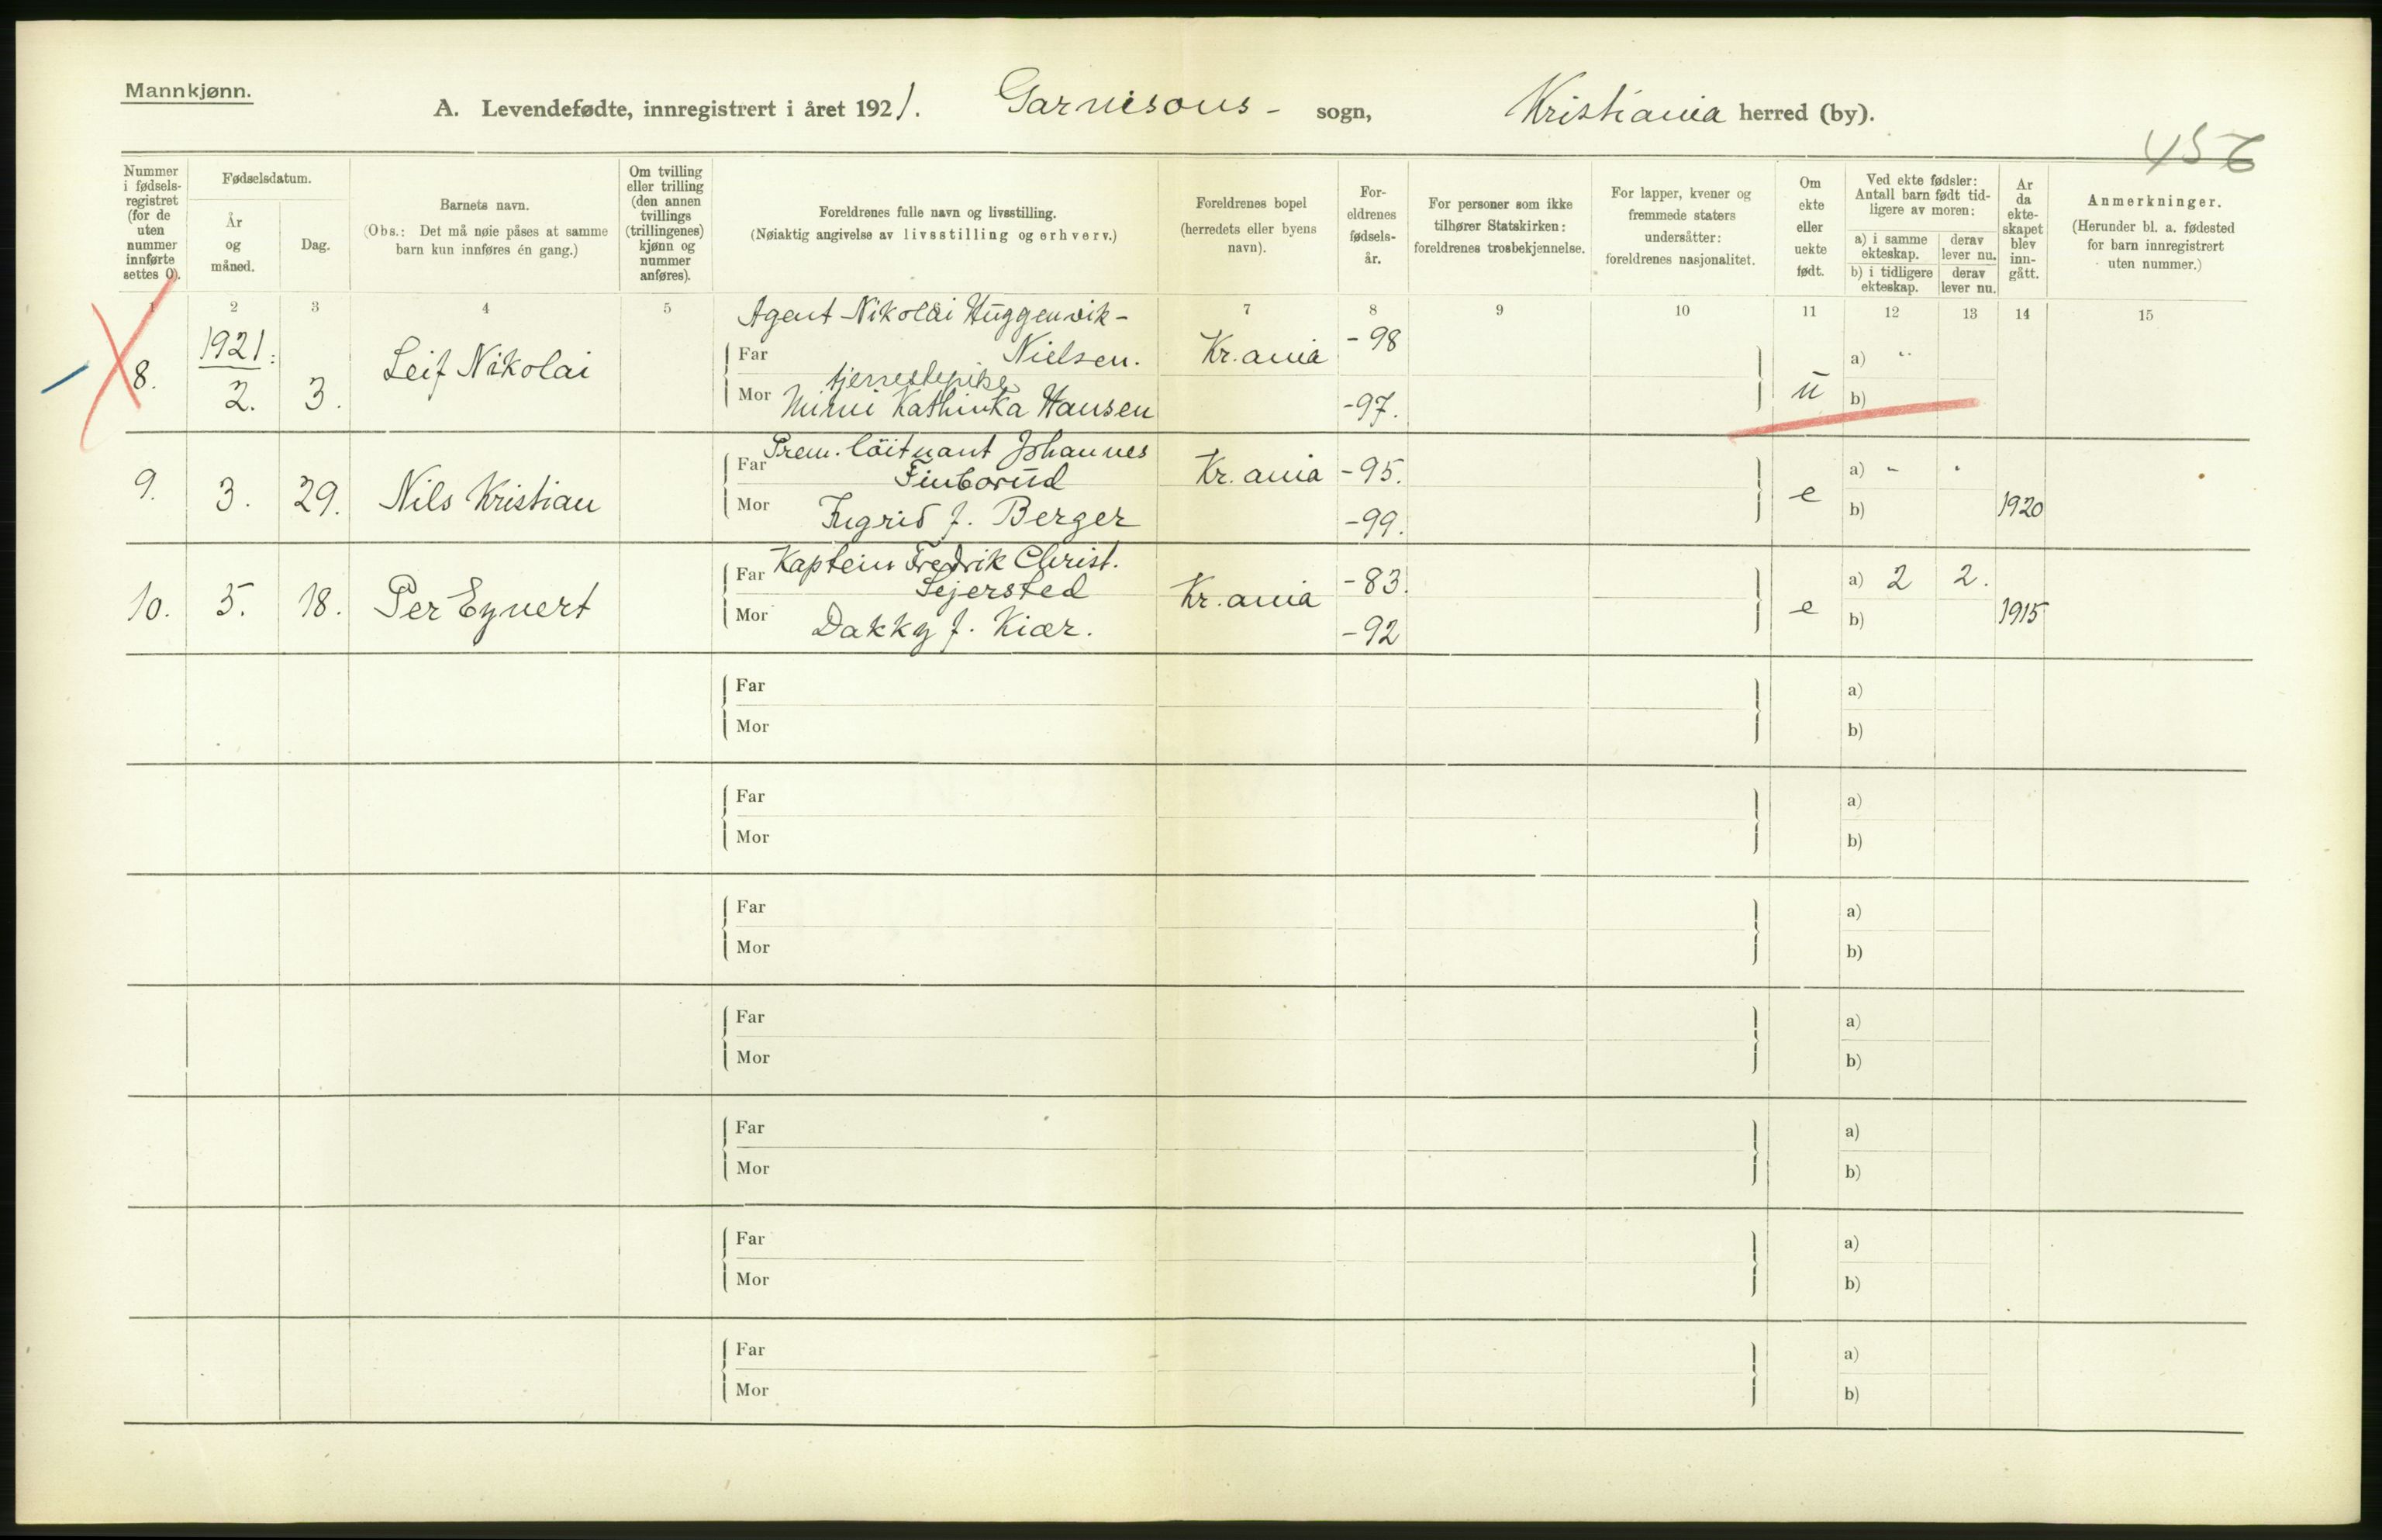 Mannkjønn.
A. Levendefødte, innregistrert i året 1921. Garnisons- sogn, Kristiania herred (by).
456
Nummer i fødsels-registret (for de uten nummer innførte settes 0).
Fødselsdatum.
År og måned.
Dag.
Barnets navn.
(Obs.: Det må nøie påses at samme barn kun innføres én gang.)
Om tvilling eller trilling (den annen tvillings (trillingenes) kjønn og nummer anføres).
Foreldrenes fulle navn og livsstilling.
(Nøiaktig angivelse av livsstilling og erhverv.)
Foreldrenes bopel (herredets eller byens navn).
For-eldrenes fødsels-år.
For personer som ikke tilhører Statskirken: foreldrenes trosbekjennelse.
For lapper, kvener og fremmede staters undersåtter: foreldrenes nasjonalitet.
Om ekte eller uekte født.
Ved ekte fødsler: Antall barn født tid-ligere av moren:
a) i samme ekteskap.
derav lever nu.
b) i tidligere ekteskap.
derav lever nu.
År da ekte-skapet blev inn-gått.
Anmerkninger.
(Herunder bl. a. fødested for barn innregistrert uten nummer.)
1 2 3 4 5 7 8 9 10 11 12 13 14 15
8. 1921: 2. 3. Leif Nikolai
Agent Nikolai Huggenvik-
Far Nielsen. Kr.ania -98
tjenestepike
Mor Mimi Kathinka Hansen -97. u a) " b)
9. 3. 29. Nils Kristian
Prem. löitnant Johannes
Far Finborud Kr.ania -95.
Mor Ingrid f. Berger -99. e a) - " b) 1920
10. 5. 18. Per Eyvert
Far Kaptein Fredrik Christ.
Sejersted Kr.ania -83.
Mor Dakky f. Kiær. -92 e a) 2 2. b) 1915
Far a)
Mor b)
Far a)
Mor b)
Far a)
Mor b)
Far a)
Mor b)
Far a)
Mor b)
Far a)
Mor b)
Far a)
Mor b)